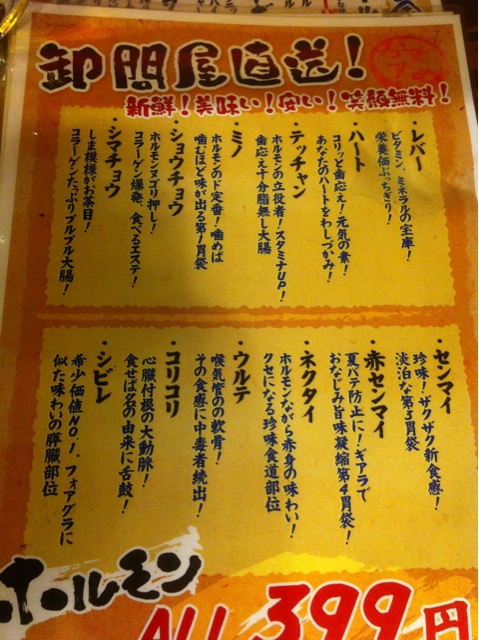 卸問屋直送!
おすすめ
新鮮!美味い!安い!笑顔無料!
・レバー
ビタミン、ミネラルの宝庫!
栄養価ぶっちぎり!
・ハート
コリッと歯応え!元気の素!
あなたのハートをわしづかみ!
・テッチャン
ホルモンの立役者!スタミナUP!
歯応え十分脂無し大腸
・ミノ
ホルモンのド定番!噛めば
噛むほど味が出る第1胃袋
・ショウチョウ
ホルモンヌゴリ押し!
コラーゲン爆発、食べるエステ!
・シマチョウ
しま模様がお茶目!
コラーゲンたっぷりプルプル大腸!
・センマイ
珍味!ザクザク新食感!
淡泊な第3胃袋
・赤センマイ
夏バテ防止に!ギアラで
おなじみ旨味凝縮第4胃袋!
・ネクタイ
ホルモンながら赤身の味わい!
クセになる珍味食道部位
・ウルテ
喉気管のの軟骨!
その食感に中毒者続出!
・コリコリ
心臓付根の大動脈!
食せば名の由来に舌鼓!
・シビレ
希少価値NO.1、フォアグラに
似た味わいの膵臓部位
ホールモン
ALL 399円